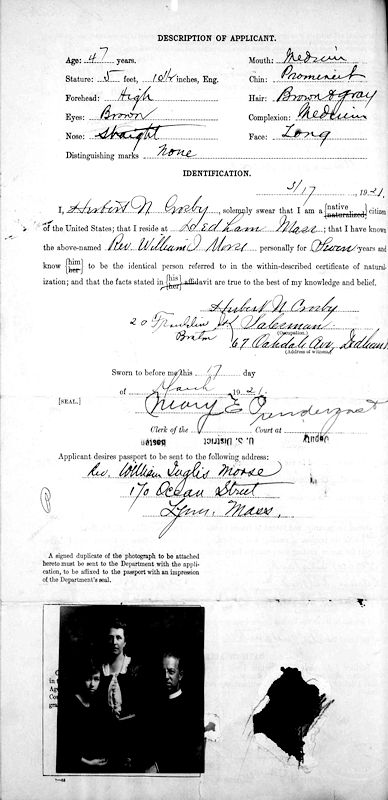 DESCRIPTION OF APPLICANT.
Age: 47 years. Mouth: Medium
Stature: 5 feet, 10½ inches, Eng. Chin: Prominent
Forehead: High Hair: Brown & gray
Eyes: Brown Complexion: Medium
Nose: Straight Face: Long
Distinguishing marks None
IDENTIFICATION.
3/17, 1921.
I, Herbert N Crosby, solemnly swear that I am a {native naturalized} citizen
of the United States; that I reside at Dedham Mass; that I have known
the above-named Rev. William I Morse personally for Seven years and
know {him her} to be the identical person referred to in the within-described certificate of natural-
ization; and that the facts stated in {his her} affidavit are true to the best of my knowledge and belief.
Herbert N Crosby
20 Franklin St Salesman
(Occupation.)
Boston 67 Oakdale Ave, Dedham.
(Address of witness.)
Sworn to before me this 17 day
of March, 1921.
[SEAL.] Mary E Prendergast
Clerk of the Court at
U. S. District Boston
Applicant desires passport to be sent to the following address:
Rev. William Inglis Morse
170 Ocean Street
Lynn. Mass.
A signed duplicate of the photograph to be attached
hereto must be sent to the Department with the appli-
cation, to be affixed to the passport with an impression
of the Department's seal.